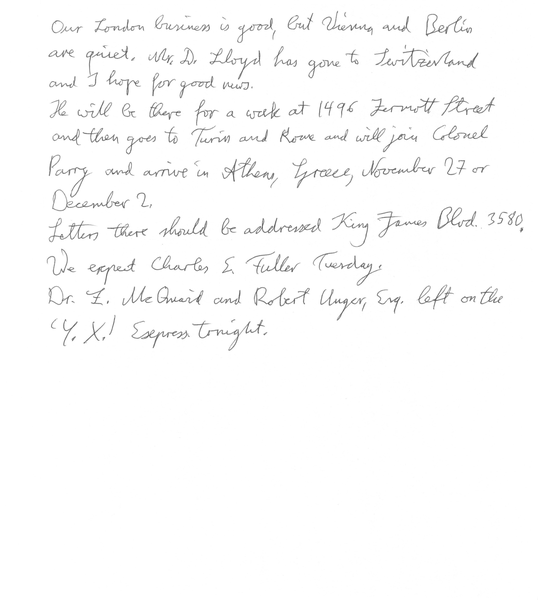 Our London business is good, but Vienna and Berlin
are quiet. Mr. D. Lloyd has gone to Switzerland
and I hope for good news.
He will be there for a week at 1496 Zermott Street
and then goes to Turin and Rome and will join Colonel
Parry and arrive in Athens, Greece, November 27 or
December 2.
Letters there should be addressed King James Blvd. 3580.
We expect Charles E. Fuller Tuesday.
Dr. L. McQuaid and Robert Unger, Esq. left on the
'Y. X.' Esepress tonight.